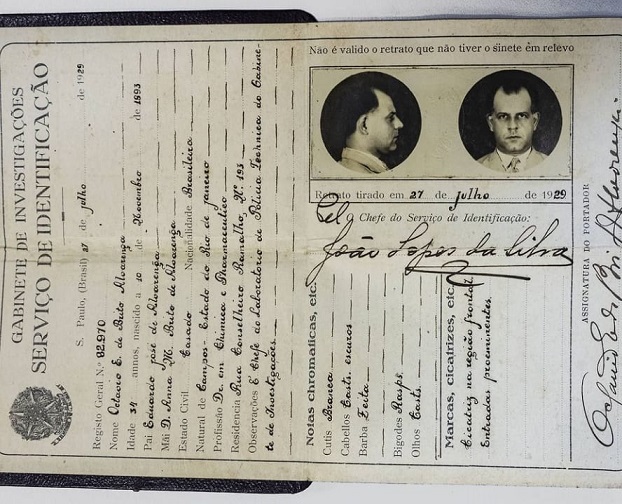 GABINETE DE INVESTIGAÇÕES
SERVIÇO DE IDENTIFICAÇÃO
S. Paulo, (Brasil) 27 de Julho de 1929
Registo Geral N.º 92.970
Nome Octavio E. de Brito Alvarenga
Idade 34 annos, nascido a 10 de Novembro de 1893
Pai Eduardo José de Alvarenga
Mãi D. Anna M. Brito de Alvarenga
Estado Civil Casado Nacionalidade Brasileira
Natural de Campos - Estado do Rio de Janeiro
Profissão Dr. em Chimica e Pharmaceutico
Residencia Rua Conselheiro Ramalho, N.º 193
Observações É Chefe do Laboratorio de Policia Technica do Gabine-
te de Investigações.
Não é valido o retrato que não tiver o sinete em relevo
Retrato tirado em 27 de Julho de 1929
Pel O Chefe do Serviço de Identificação:
João Lopes da Silva
Notas chromaticas, etc.
Cutis Branca
Cabellos Casts. escuros
Barba Feita
Bigodes Rasps.
Olhos Casts.
Marcas, cicatrizes, etc.
Cicatriz na região frontal.
Entradas proeminentes.
ASSIGNATURA DO PORTADOR